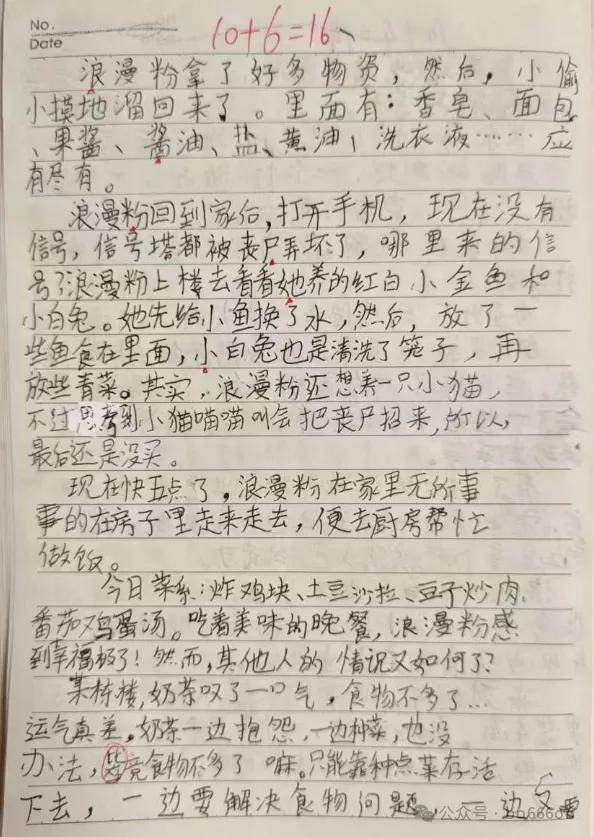 No.
Date
10+6=16
浪漫粉拿了好多物资，然后，小偷
小摸地溜回来了。里面有：香皂、面包
、果酱、酱油、盐、黄油、洗衣液……应
有尽有。
浪漫粉回到家后，打开手机，现在没有
信号，信号塔都被丧尸弄坏了，哪里来的信
号？浪漫粉上楼去看看她养的红白小金鱼和
小白兔。她先给小鱼换了水，然后，放了一
些鱼食在里面，小白兔也是清洗了笼子，再
放些青菜。其实，浪漫粉还想养一只小猫，
不过思考到小猫喵喵叫会把丧尸招来，所以，
最后还是没买。
现在快五点了，浪漫粉在家里无所事
事的在房子里走来走去，便去厨房帮忙
做饭。
今日菜系：炸鸡块、土豆沙拉、豆子炒肉、
番茄鸡蛋汤。吃着美味的晚餐，浪漫粉感
到幸福极了！然而，其他人的情况又如何了？
某栋楼，奶茶叹了一口气，食物不多了…
运气真差。奶茶一边抱怨，一边种菜，也没
办法，毕竟食物不多了嘛。只能靠种点菜存活
下去，一边要解决食物问题，一边又要
公众号